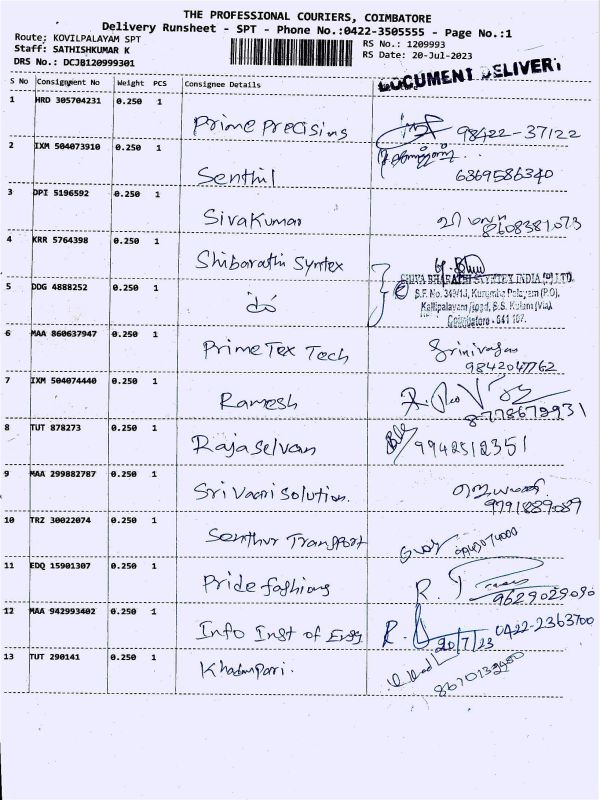 THE PROFESSIONAL COURIERS, COIMBATORE
Delivery Runsheet - SPT - Phone No.:0422-3505555 - Page No.:1
Route; KOVILPALAYAM SPT
RS No.: 1209993
Staff: SATHISHKUMAR K
RS Date: 20-Jul-2023
DRS No.: DCJB120999301
DOCUMENT DELIVERY
S No Consignment No Weight PCS Consignee Details
1 HRD 305704231 0.250 1
Prime Precisins 98422-37122
2 IXM 504073910 0.250 1
Senthil 6369586340
3 DPI 5196592 0.250 1
Sivakumar 8608381073
4 KRR 5764398 0.250 1
Shibarathi Syntex
SHIVA BHARATHI SYNTEX INDIA (P) LTD.
5 DDG 4888252 0.250 1
S.F. No. 349/1J, Kurumba Palayam (P.O),
do
Kallipalayam Road, S.S. Kulam (Via),
Coimbatore - 641 107.
6 MAA 860637947 0.250 1
Prime Tex Tech Srinivasan
9842047762
7 IXM 504074440 0.250 1
Ramesh 8778679931
8 TUT 878273 0.250 1
Rajaselvan 9942512351
9 MAA 299882787 0.250 1
Sri Vaari Solution. 9791889089
10 TRZ 30022074 0.250 1
Senthur Transport
11 EDQ 15901307 0.250 1
Pride fashions 9629029090
12 MAA 942993402 0.250 1
Info Inst of Engg 20/7/23 0422-2363700
13 TUT 290141 0.250 1